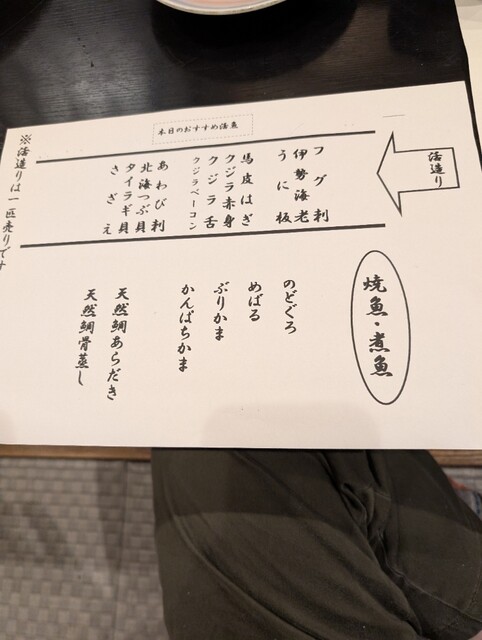 本日のおすすめ活魚
活造り
フグ刺
伊勢海老
うに板
馬皮はぎ
クジラ赤身
クジラ舌
クジラベーコン
あわび刺
北海つぶ貝
タイラギ貝
さざえ
※活造りは一匹売りです
焼魚・煮魚
のどぐろ
めばる
ぶりかま
かんぱちかま
天然鯛あらだき
天然鯛骨蒸し